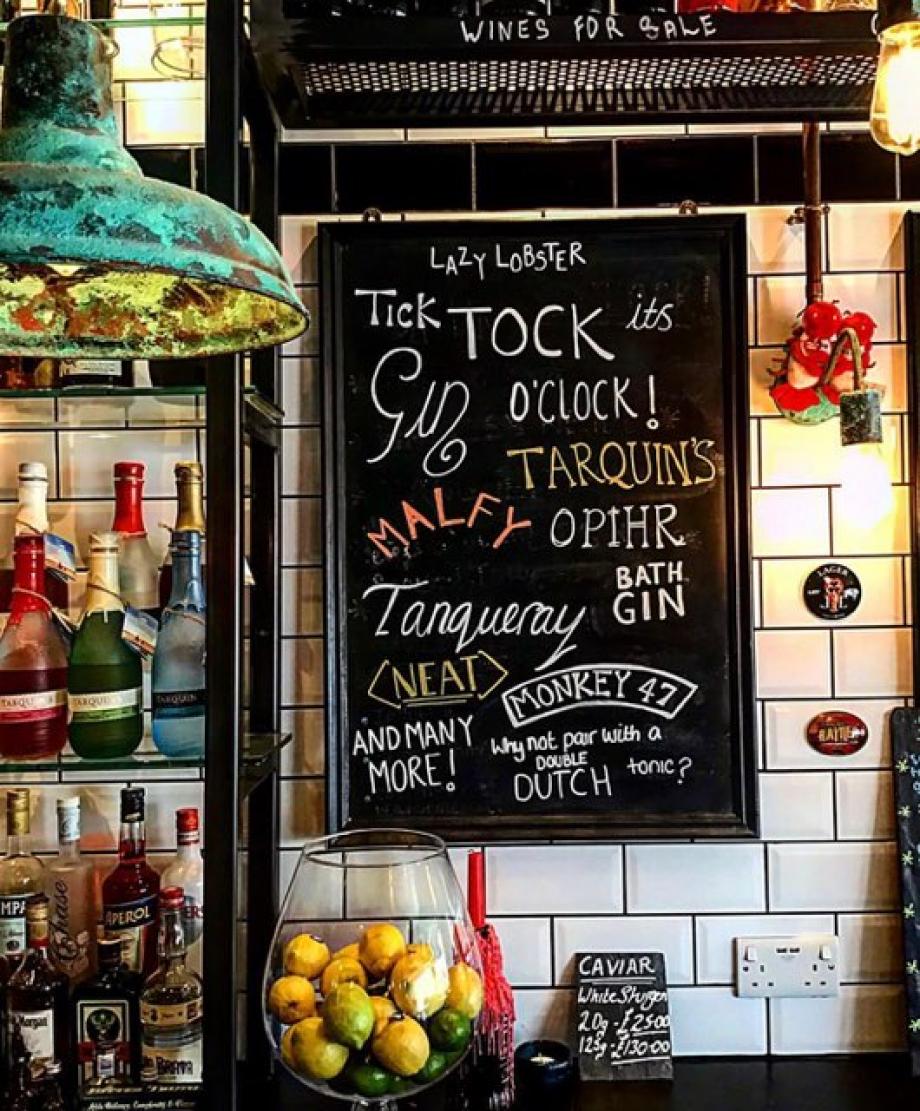 WINES FOR SALE
LAZY LOBSTER
TICK TOCK its
Gin O'CLOCK!
TARQUIN'S
MALFY OPIHR
Tanqueray BATH
GIN
NEAT MONKEY 47
AND MANY
MORE!
Why not pair with a
DOUBLE
DUTCH tonic?
LAGER
RATTLER
TARQUIN
TARQUIN
TARQUIN
Chase
APEROL
Morgan
CAVIAR
White Sturgen
20g - £25.00
125g - £130.00